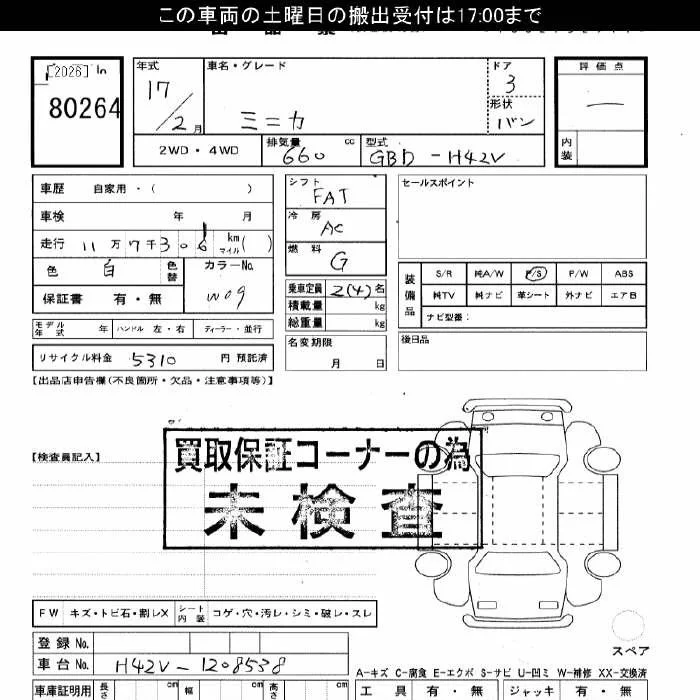 この車両の土曜日の搬出受付は17:00まで
[2026] In
80264
年式
17
/2月
車名・グレード
ミニカ
ドア
3
形状
バン
評価点
一
内装
2WD・4WD
排気量 660 cc
型式 GBD-H42V
車歴 自家用・( )
車検 年 月
走行 11万7千306 km マイル ( )
色 白 色替
カラーNo.
W09
保証書 有・無
モデル年式 年 ハンドル 左・右 ディーラー・並行
リサイクル料金 5310 円 預託済
シフト
FAT
冷房
AC
燃料
G
乗車定員 2(4)名
積載量 kg
総重量 kg
名変期限
月 日
セールスポイント
装備品
S/R 純A/W P/S P/W ABS
純TV 純ナビ 革シート 外ナビ エアB
ナビ型番:
後日品
【出品店申告欄(不良箇所・欠品・注意事項等)】
【検査員記入】
買取保証コーナーの為
未検査
FW キズ・トビ石・割レX シート内装 コゲ・穴・汚レ・シミ・破レ・スレ
スペア
登録No.
車台No. H42V-1208538
A-キズ C-腐食 E-エクボ S-サビ U-凹ミ W-補修 XX-交換済
車庫証明用 長さ cm 幅 cm 高さ cm
工具 有・無 ジャッキ 有・無